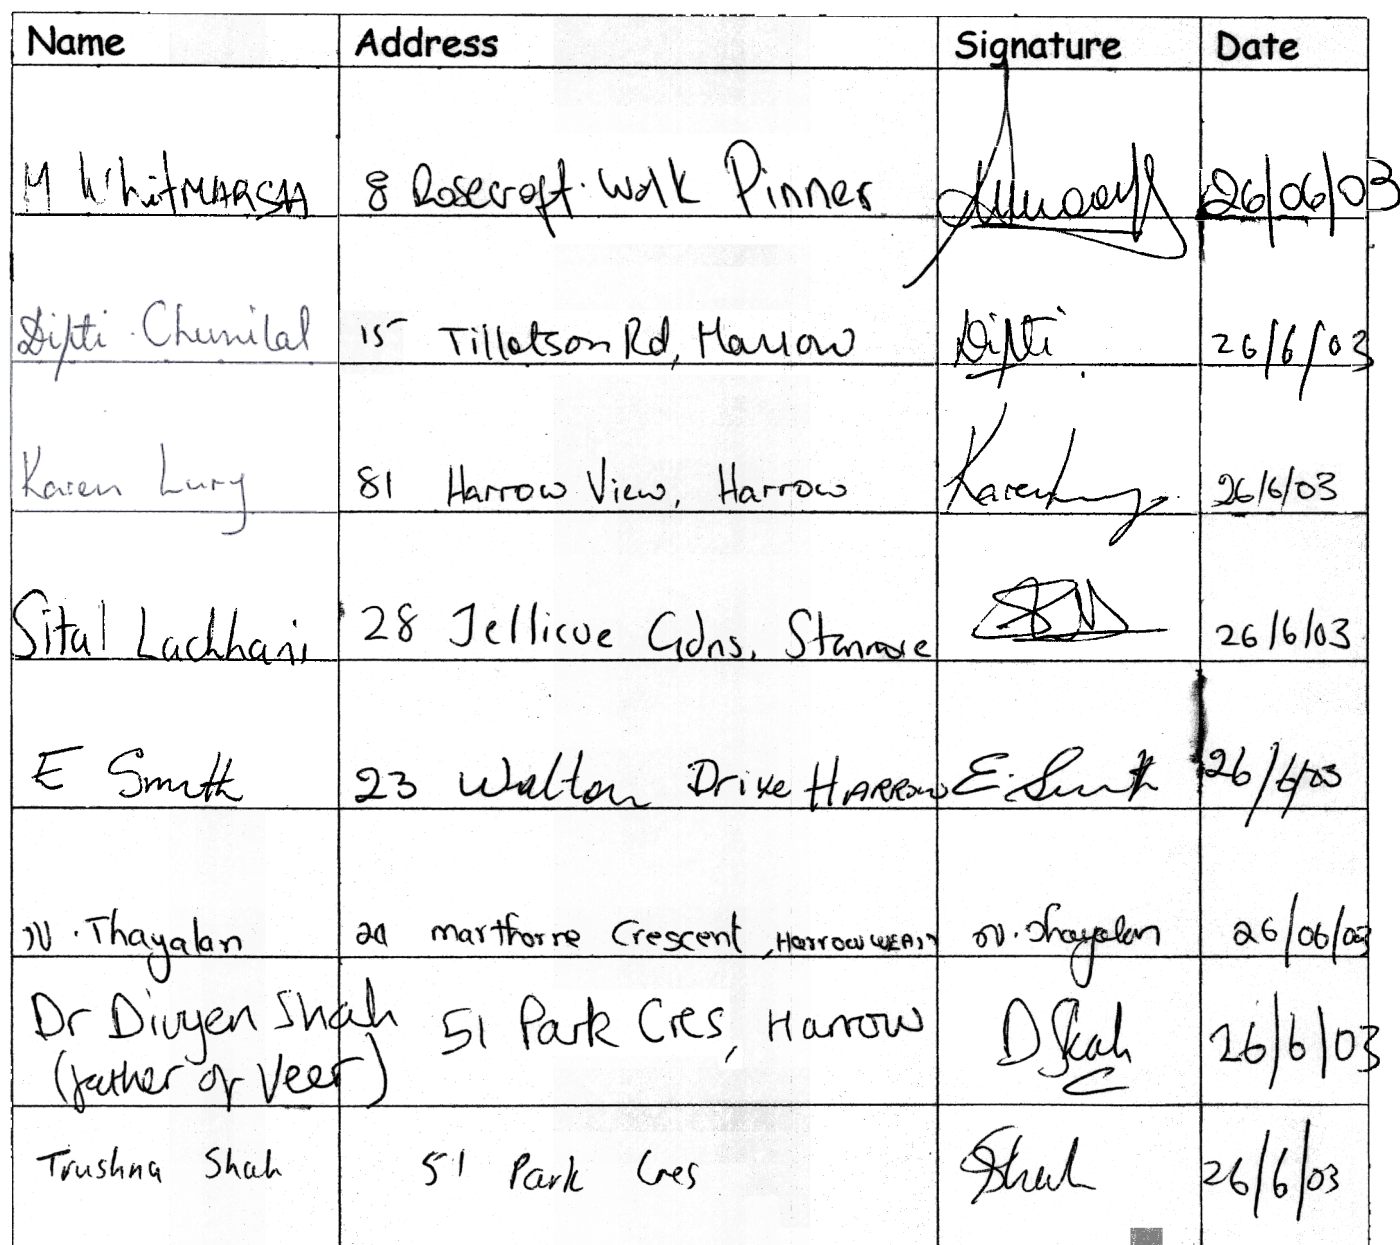 Name Address Signature Date
M WhitMARSH 8 Rosecroft. Walk Pinner 26/06/03
Dipti Chunilal 15 Tillotson Rd, Harrow Dipti 26/6/03
Karen Lury 81 Harrow View, Harrow Karen Lury 26/6/03
Sital Lachhani 28 Jellicoe Gdns, Stanmore 26/6/03
E Smith 23 Walton Drive HARROW E. Smith 26/6/03
N. Thayalan marthorne Crescent, Harrow WEALD N. Thayalan 26/06/03
Dr Divyen Shah 51 Park Cres, Harrow D Shah 26/6/03
(father of Veer)
Trushna Shah 51 Park Cres Shah 26/6/03